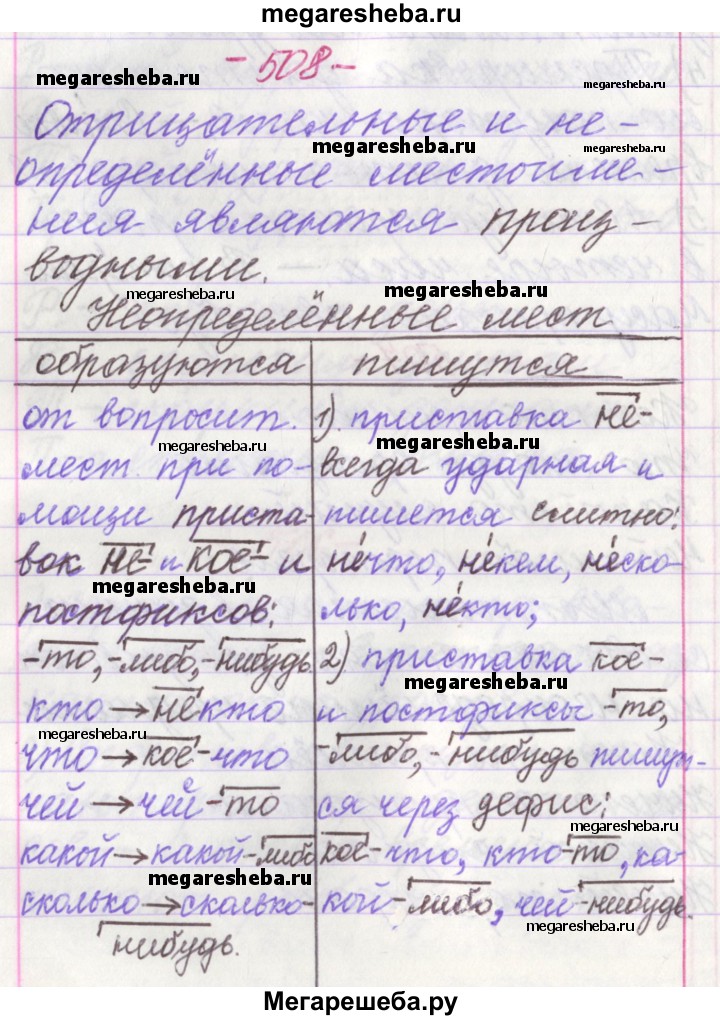 megaresheba.ru
- 508 -
megaresheba.ru
megaresheba.ru
Отрицательные и не-
megaresheba.ru
megaresheba.ru
определённые местоиме-
ния являются произ-
водными.
megaresheba.ru
megaresheba.ru
Неопределённые мест.
образуются | пишутся
от вопросит.
мест. при по-
мощи приста-
вок не- и кое- и
постфиксов:
-то, -либо, -нибудь.
кто → некто
что → кое-что
чей → чей-то
какой → какой-либо
сколько → сколько-
нибудь.
1). приставка не-
всегда ударная и
пишется слитно:
не́что, не́кем, не́ско-
лько, не́кто;
2) приставка кое-
и постфиксы -то,
-либо, -нибудь пишут-
ся через дефис:
кое-что, кто-то, ка-
кой-либо, чей-нибудь.
megaresheba.ru
megaresheba.ru
megaresheba.ru
megaresheba.ru
megaresheba.ru
megaresheba.ru
megaresheba.ru
megaresheba.ru
megaresheba.ru
Мегарешеба.ру